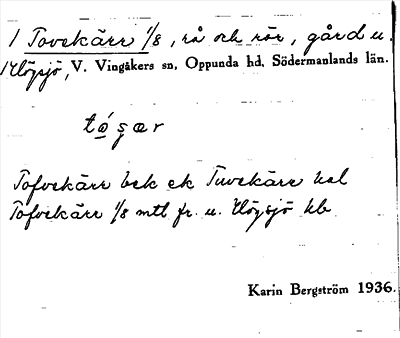 1 Tovekärr 1/8, rå och rör, gård u.
Högsjö, V. Vingåkers sn, Oppunda hd, Södermanlands län.
Tofvekärr bek ek Tuvekärr hal
Tofvekärr 1/8 mtl fr. u. Högsjö hb
Karin Bergström 1936.